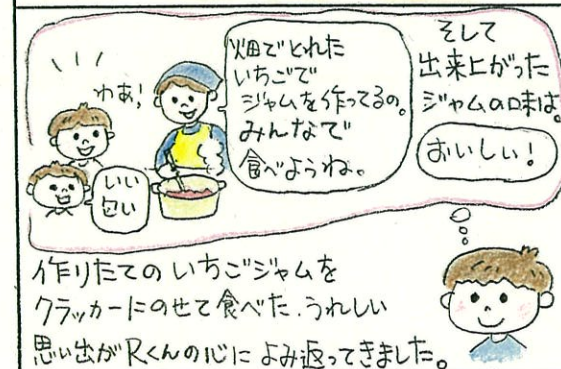 わぁ!
いい
匂い
畑でとれた
いちごで
ジャムを作ってるの。
みんなで
食べようね。
そして
出来上がった
ジャムの味は。
おいしい!
作りたての いちごジャムを
クラッカーにのせて食べた、うれしい
思い出がRくんの心に よみ返ってきました。